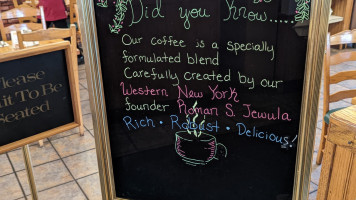 Did you know.....
Our coffee is a specially
formulated blend
Carefully created by our
Western New York
founder Roman S. Jewula
Rich • Robust • Delicious!
Please
ait To Be
Seated